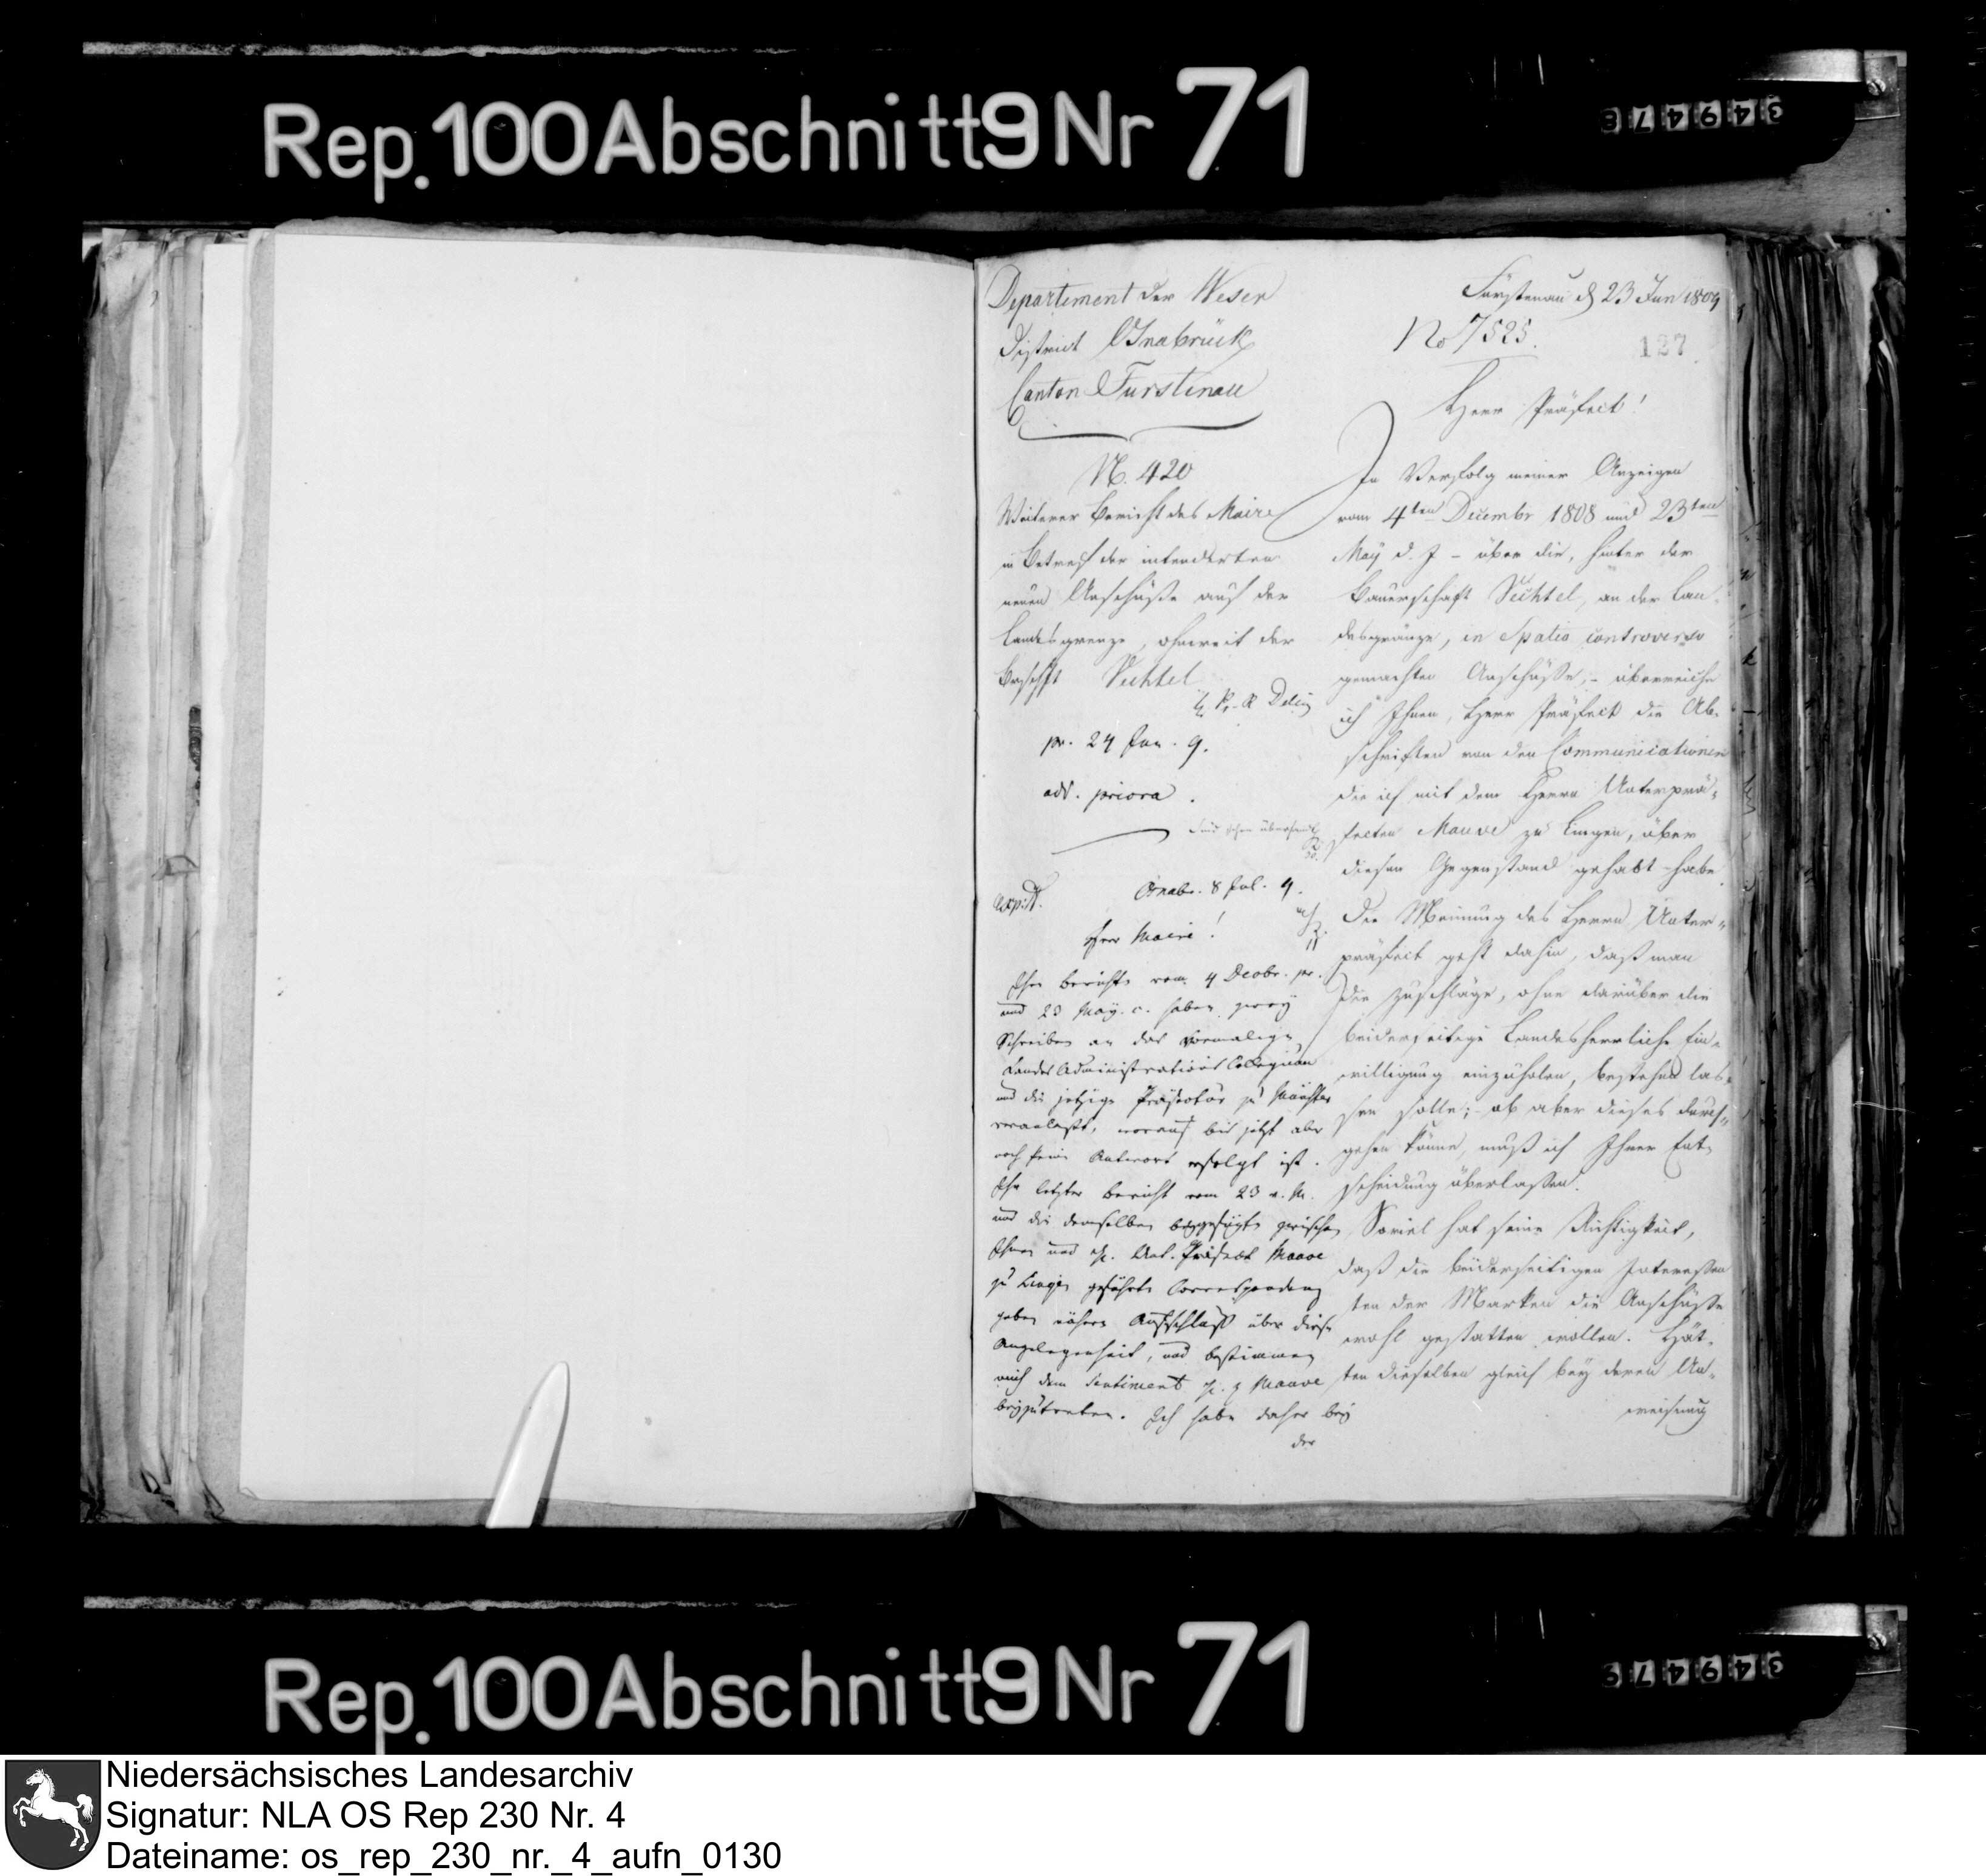 Rep. 100 Abschnitt 9 Nr 71
349478
Departement der Weser
District Osnabrück
Canton Furstenau
N. 420
Weiterer Bericht des Maire
in Betref der intendirten
neuen Anschüße auf der
Landesgrenze, ohnweit der
Brschft Vechtel
pr. 24 Jun. 9.
add. priora.
sind schon übersandt
exp: d.
Osnabr. 8 Jul. 9.
Herr Maire!
Ihre Berichte vom 4 Decbr. pr.
und 23 May. c. haben zwey
Schreiben an das vormalige
Landes Administrations Collegium
und die jetzige Präfectur zu Münster
veranlaßt, worauf bis jetzt aber
noch keine Antwort erfolgt ist.
Ihr letzter Bericht vom 23 v. M.
und die demselben beygefügte zwischen
Ihnen und H. Unt. Präfect Mauve
zu Lingen geführte Correspondenz
geben nähern Aufschluß über diese
Angelegenheit, und bestimmen
mich dem Sentiment H. Mauve
beyzutreten. Ich habe daher bey
der
Fürstenau d 23 Jun 1809
No 7525.
127
Herr Präfect!
In Verfolg meiner Anzeigen
vom 4ten Decembr 1808 und 23ten
May d. J – über die, hinter der
Bauerschaft Vechtel, an der Lan-
desgränze, in Spatio controverso
gemachten Anschüße, – überreiche
ich Ihnen, Herr Präfect die Ab-
schriften von den Communicationen
die ich mit dem Herrn Unterprä-
fecten Mauve zu Lingen, über
diesen Gegenstand gehabt habe.
Die Meinung des Herrn Unter-
präfect geht dahin, daß man
die Zuschläge, ohne darüber die
beiderseitige Landesherrliche Ein-
willigung einzuholen, bestehen las-
sen solle; – ob aber dieses durch-
gehen könne, muß ich Ihrer Ent-
scheidung überlaßen.
Soviel hat seine Richtigkeit,
daß die beiderseitigen Intereßen-
ten der Marken die Anschüße
wohl gestatten wollen. Hät-
ten dieselben gleich bey deren An-
weisung
Rep. 100 Abschnitt 9 Nr 71
349479
Niedersächsisches Landesarchiv
Signatur: NLA OS Rep 230 Nr. 4
Dateiname: os_rep_230_nr._4_aufn_0130